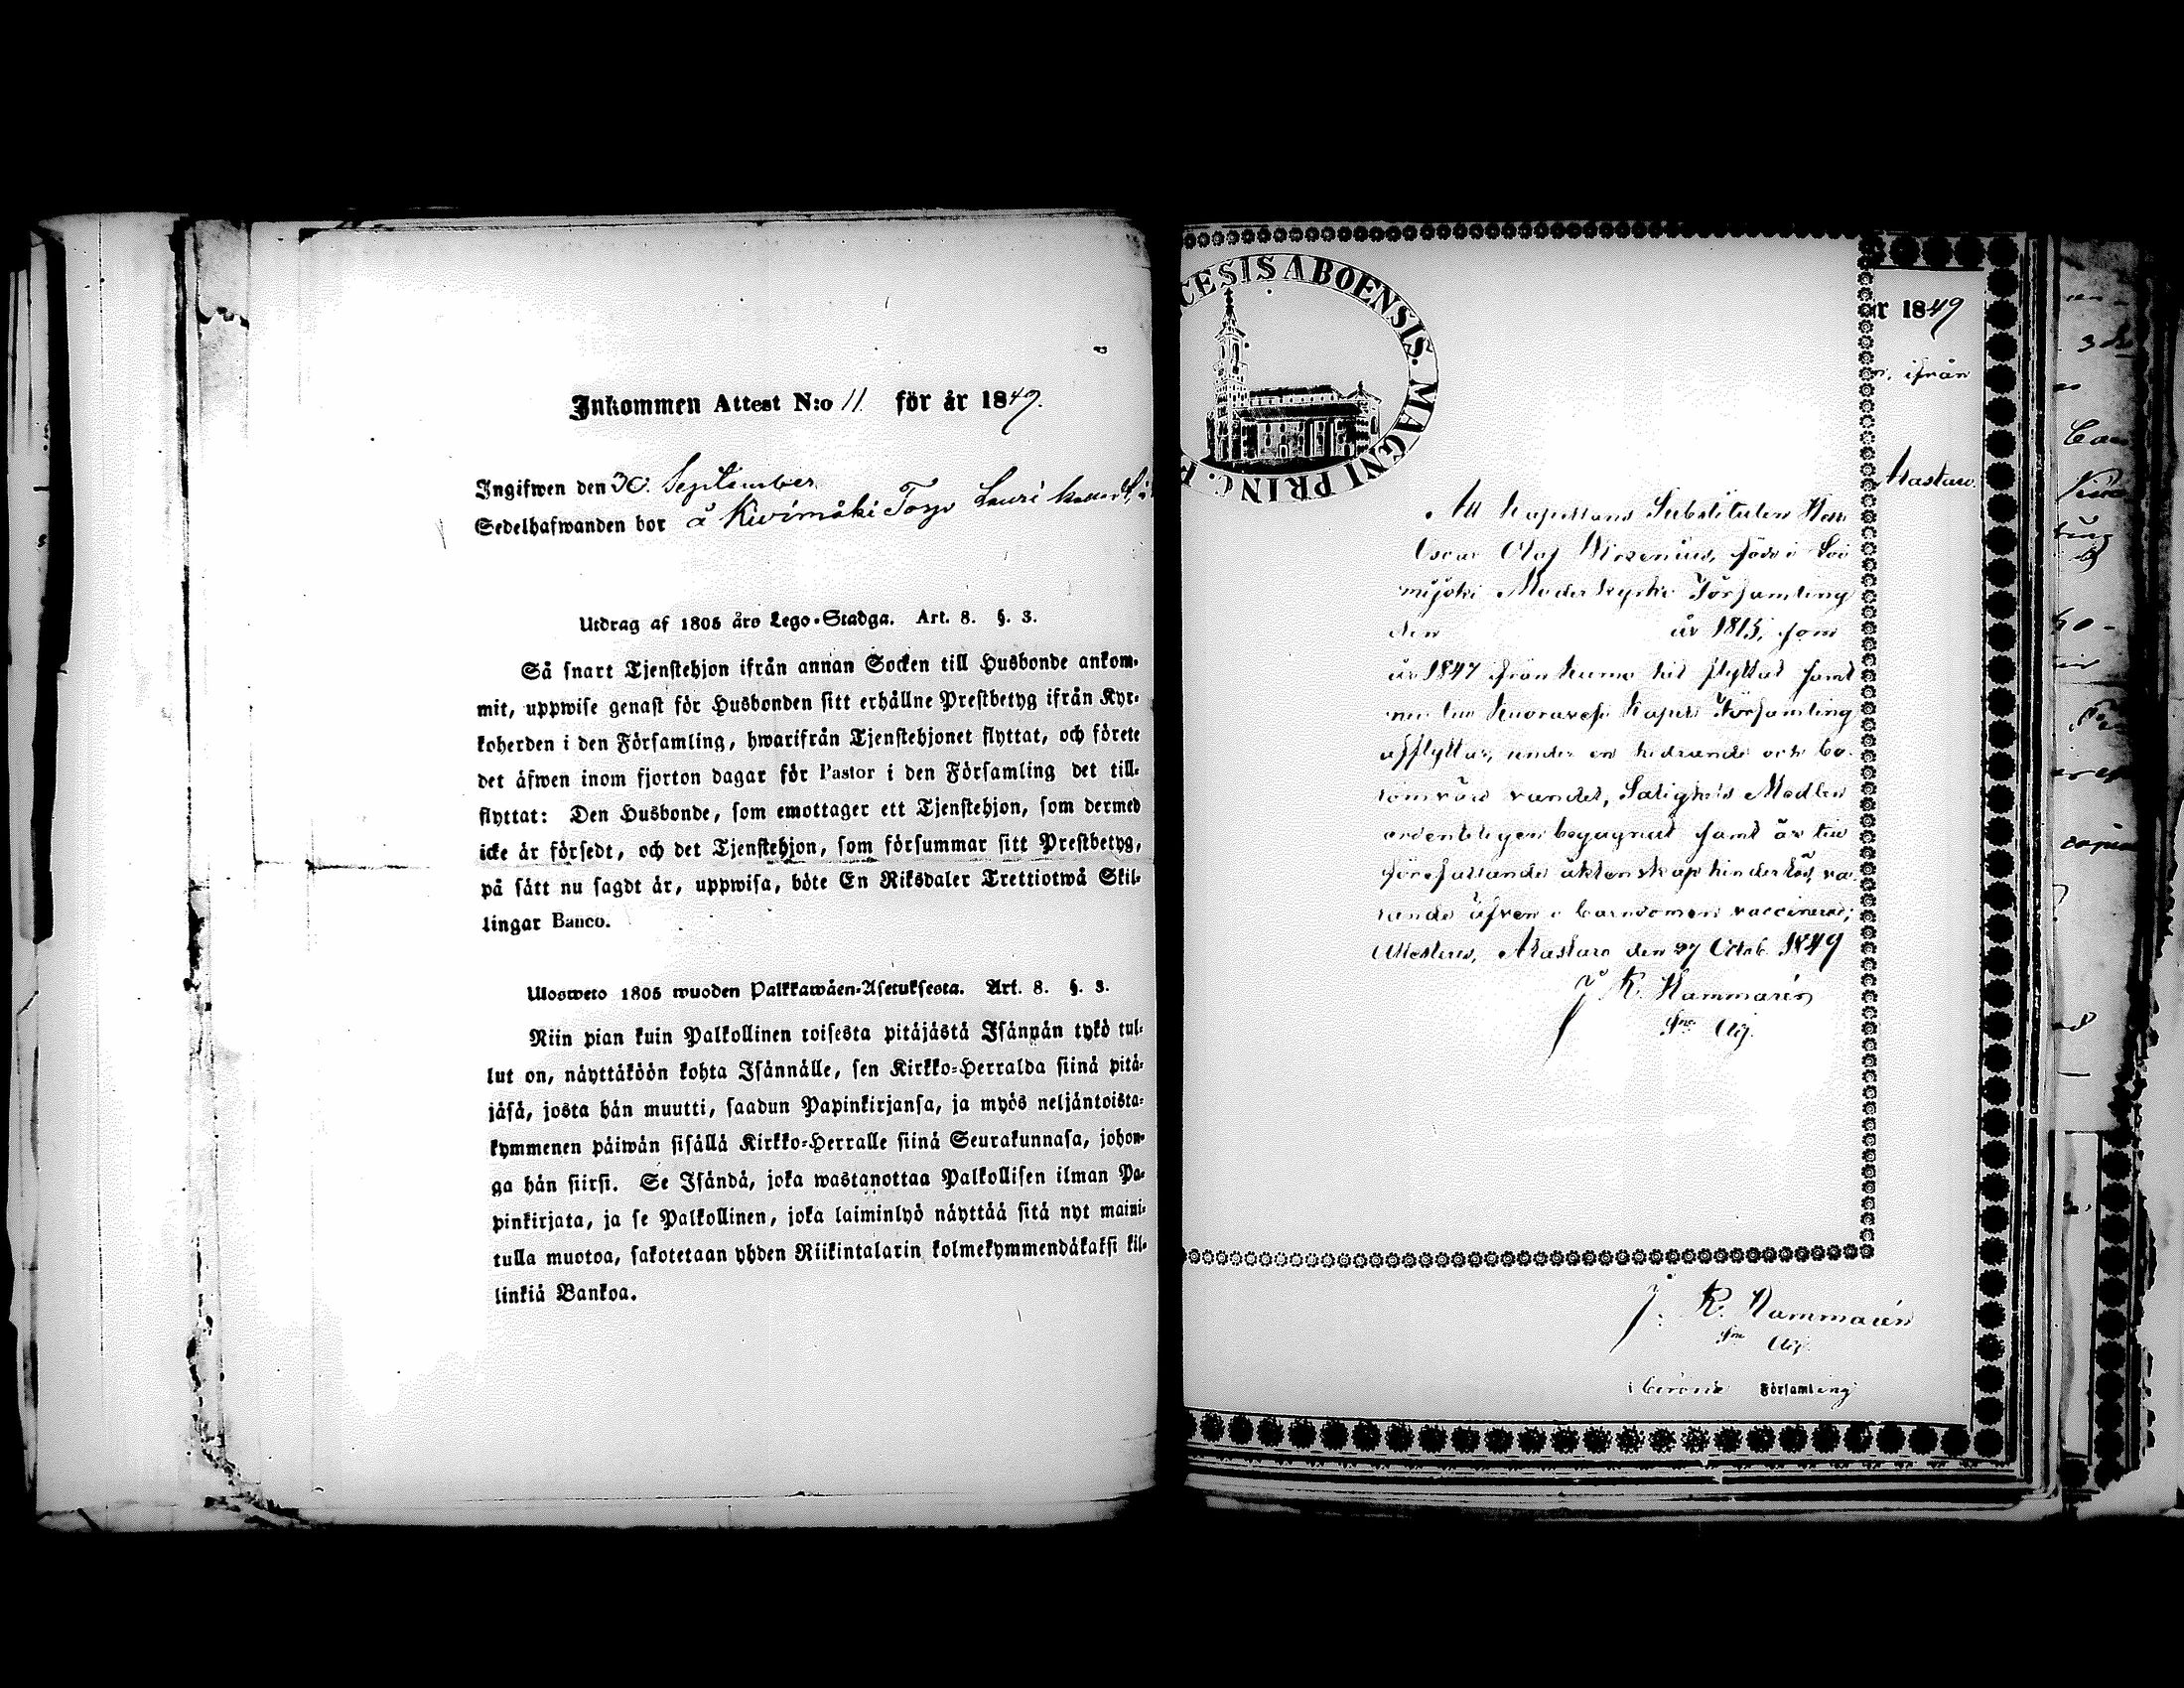 Inkommen Attest N:o 11. för år 1849.
Ingifwen den 30. September
Sedelhafwanden bor å Kivimäki Torp Lauri
Utdrag af 1805 års Lego-Stadga. Art. 8. §. 3.
Så snart Tjenstehjon ifrån annan Socken till Husbonde ankom-
mit, uppwise genast för Husbonden sitt erhållne Prestbetyg ifrån Kyr-
koherden i den Församling, hwarifrån Tjenstehjonet flyttat, och förete
det äfwen inom fjorton dagar för Pastor i den Församling det till-
flyttat: Den Husbonde, som emottager ett Tjenstehjon, som dermed
icke är försedt, och det Tjenstehjon, som försummar sitt Prestbetyg,
på sätt nu sagdt är, uppwisa, böte En Riksdaler Trettiotwå Skil-
lingar Banco.
Ulosweto 1805 wuoden Palkkawäen-Asetuksesta. Art. 8. §. 3.
Niin pian kuin Palkollinen toisesta pitäjästä Isännän tykö tul-
lut on, näyttäköön kohta Isännälle, sen Kirkko-Herralda siinä pitä-
jäsä, josta hän muutti, saadun Papinkirjansa, ja myös neljäntoista-
kymmenen päiwän sisällä Kirkko-Herralle siinä Seurakunnasa, johon-
ga hän siirsi. Se Isändä, joka wastanottaa Palkollisen ilman Pa-
pinkirjata, ja se Palkollinen, joka laiminlyö näyttää sitä nyt maini-
tulla muotoa, sakotetaan yhden Riikintalarin kolmekymmendäkaksi kil-
linkiä Bankoa.
CESIS ABOENSIS. MAGNI PRINC. F
r 1849
ifrån
Mastaro.
Att Kapellans Substituten Herr
Oscar Olof Hirsenius, född i Loi
mijoki Moderkyrko Församling
den år 1815, som
år 1847 ifrån Kumo hit flyttat samt
nu till Kuorevesi Kapels Församling
afflyttar, under en hedrande och be-
römvärd vandel, Salighets Medlen
ordenteligen begagnat samt är till
förefallande äktenskap hinderslös, va-
rande äfven i barndomen vaccinerad;
Attesteras, Mastaro den 27 Octob. 1849
J. R. Hammarén
J. R. Hammarén
Församling